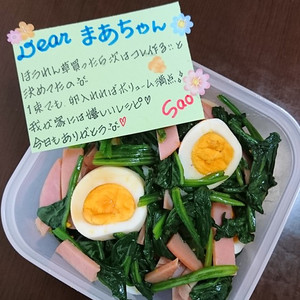 Dear まあちゃん
ほうれん草買ったら次はコレ作ること
決めてたの
1束でも、卵入れればボリューム満点!
我が家には嬉しいレシピ♡
今日もありがとう
Sao